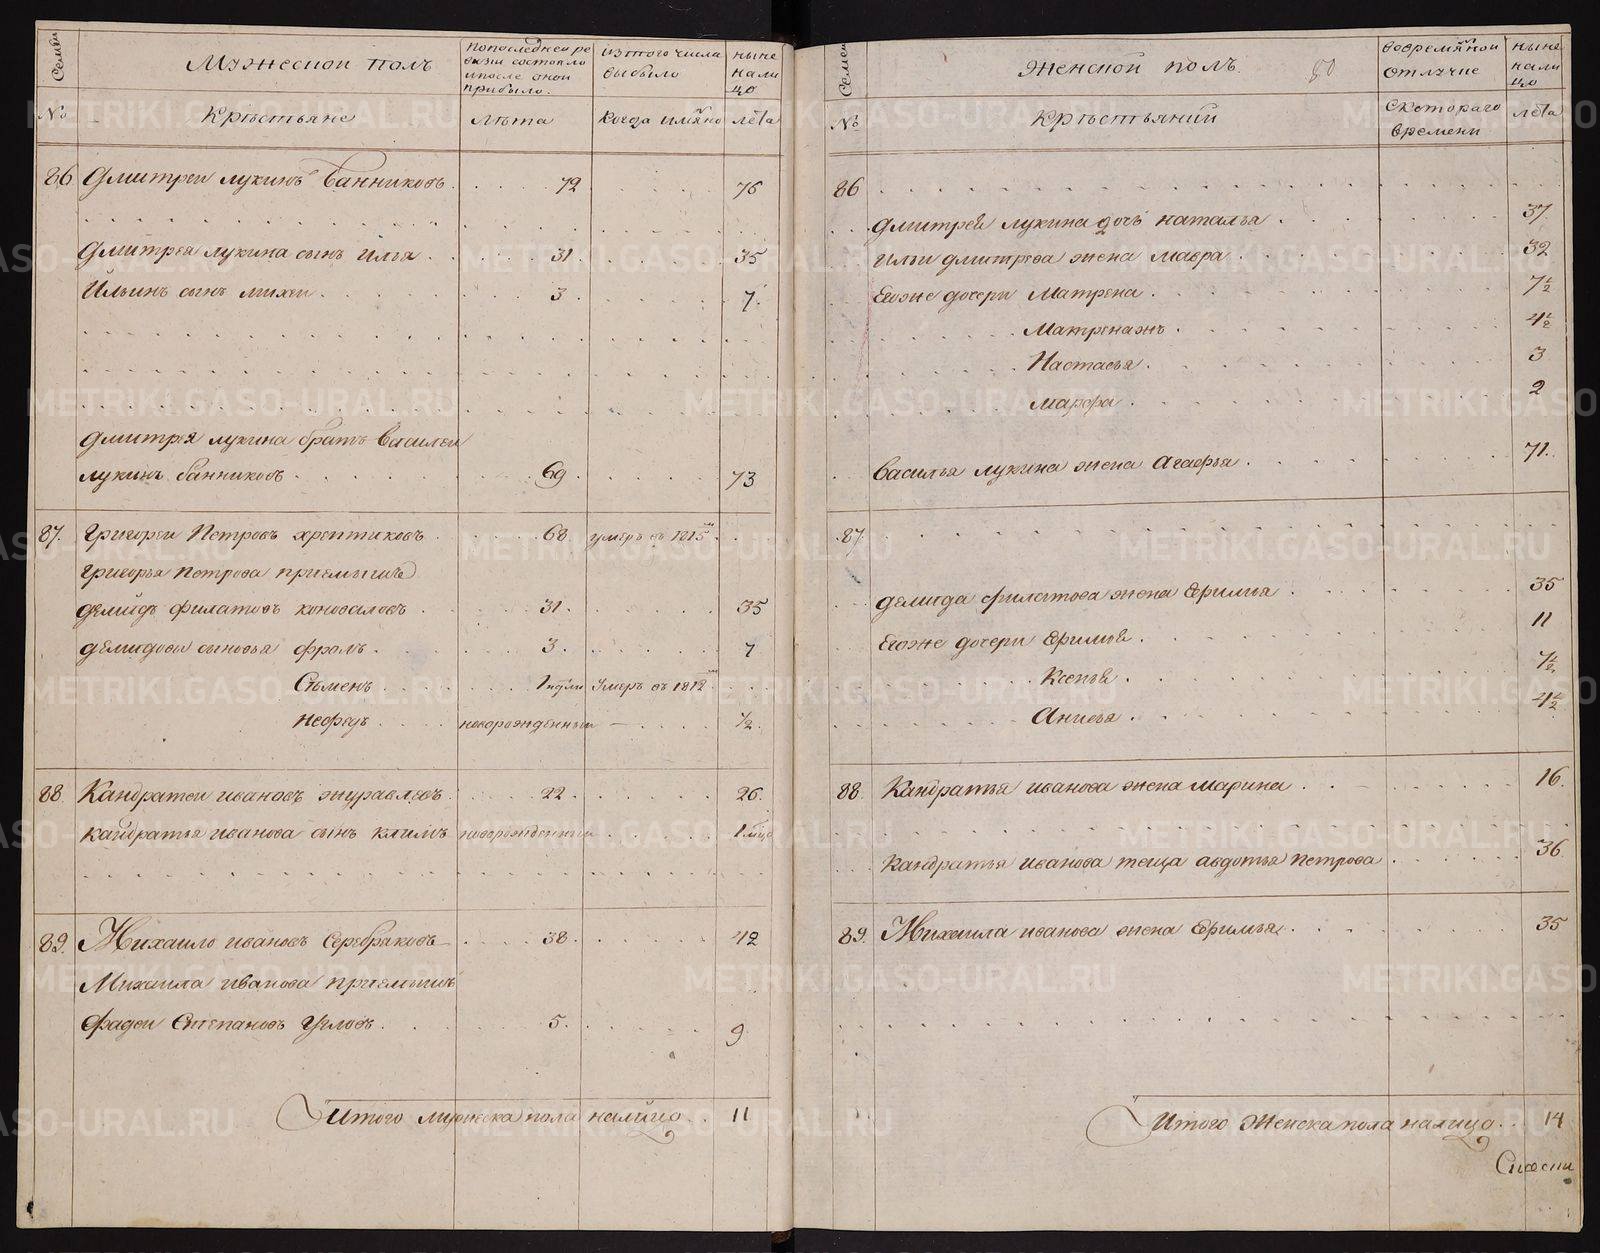 Семьи
Мужеской полъ
попоследней ре
визи состояло
и после оной
прибыло.
из того числа
выбыло
ныне
нали
цо
№
Крѣстьяне
Лѣта
Когда имяно
лѣта
86 Дмитреи лукинъ Банниковъ 72 76
Дмитрея лукина сынъ илья 31 35
Ильинъ сынъ михеи 3 7
Дмитрея лукина братъ василеи
лукинъ банниковъ 69 73
87. Григореи Петровъ хрептиковъ 68 умеръ въ 1815м
Григорья Петрова приемышъ
демидъ филатовъ коноваловъ 31 35
демидовы сыновья фролъ 3 7
Сѣменъ 1 нд҃ли умеръ въ 1812м
нефедъ новорожденныи ½
88. Кандратеи ивановъ журавлевъ 22 26
кандратья иванова сынъ климъ новорожденныи 1 мц҃а
89. Михаило ивановъ Серебряковъ 38 42
Михаила иванова приемышъ
фадеи Степановъ Угловъ 5 9
Итого мужеска пола налицо 11
Семьи
Женской полъ
80
вовремянной
отлучие
ныне
нали
цо
№
Крѣстьянии
Скотораго
времени
лѣта
86
дмитрея лукина дочь наталья 37
ильи дмитрева жена мавра 32
Егоже дочери Матрена 7½
Матренажъ 4½
Настасья 3
Марфа 2
василья лукина жена агафья 71
87
демида филатова жена Ефимья 35
Егоже дочери Ефимья 11
Ксенья 7½
Анисья 4½
88. Кандратья иванова жена марина 16
Кандратья иванова теща авдотья петрова 36
89. Михаила иванова жена Ефимья 35
Итого Женска пола налицо 14